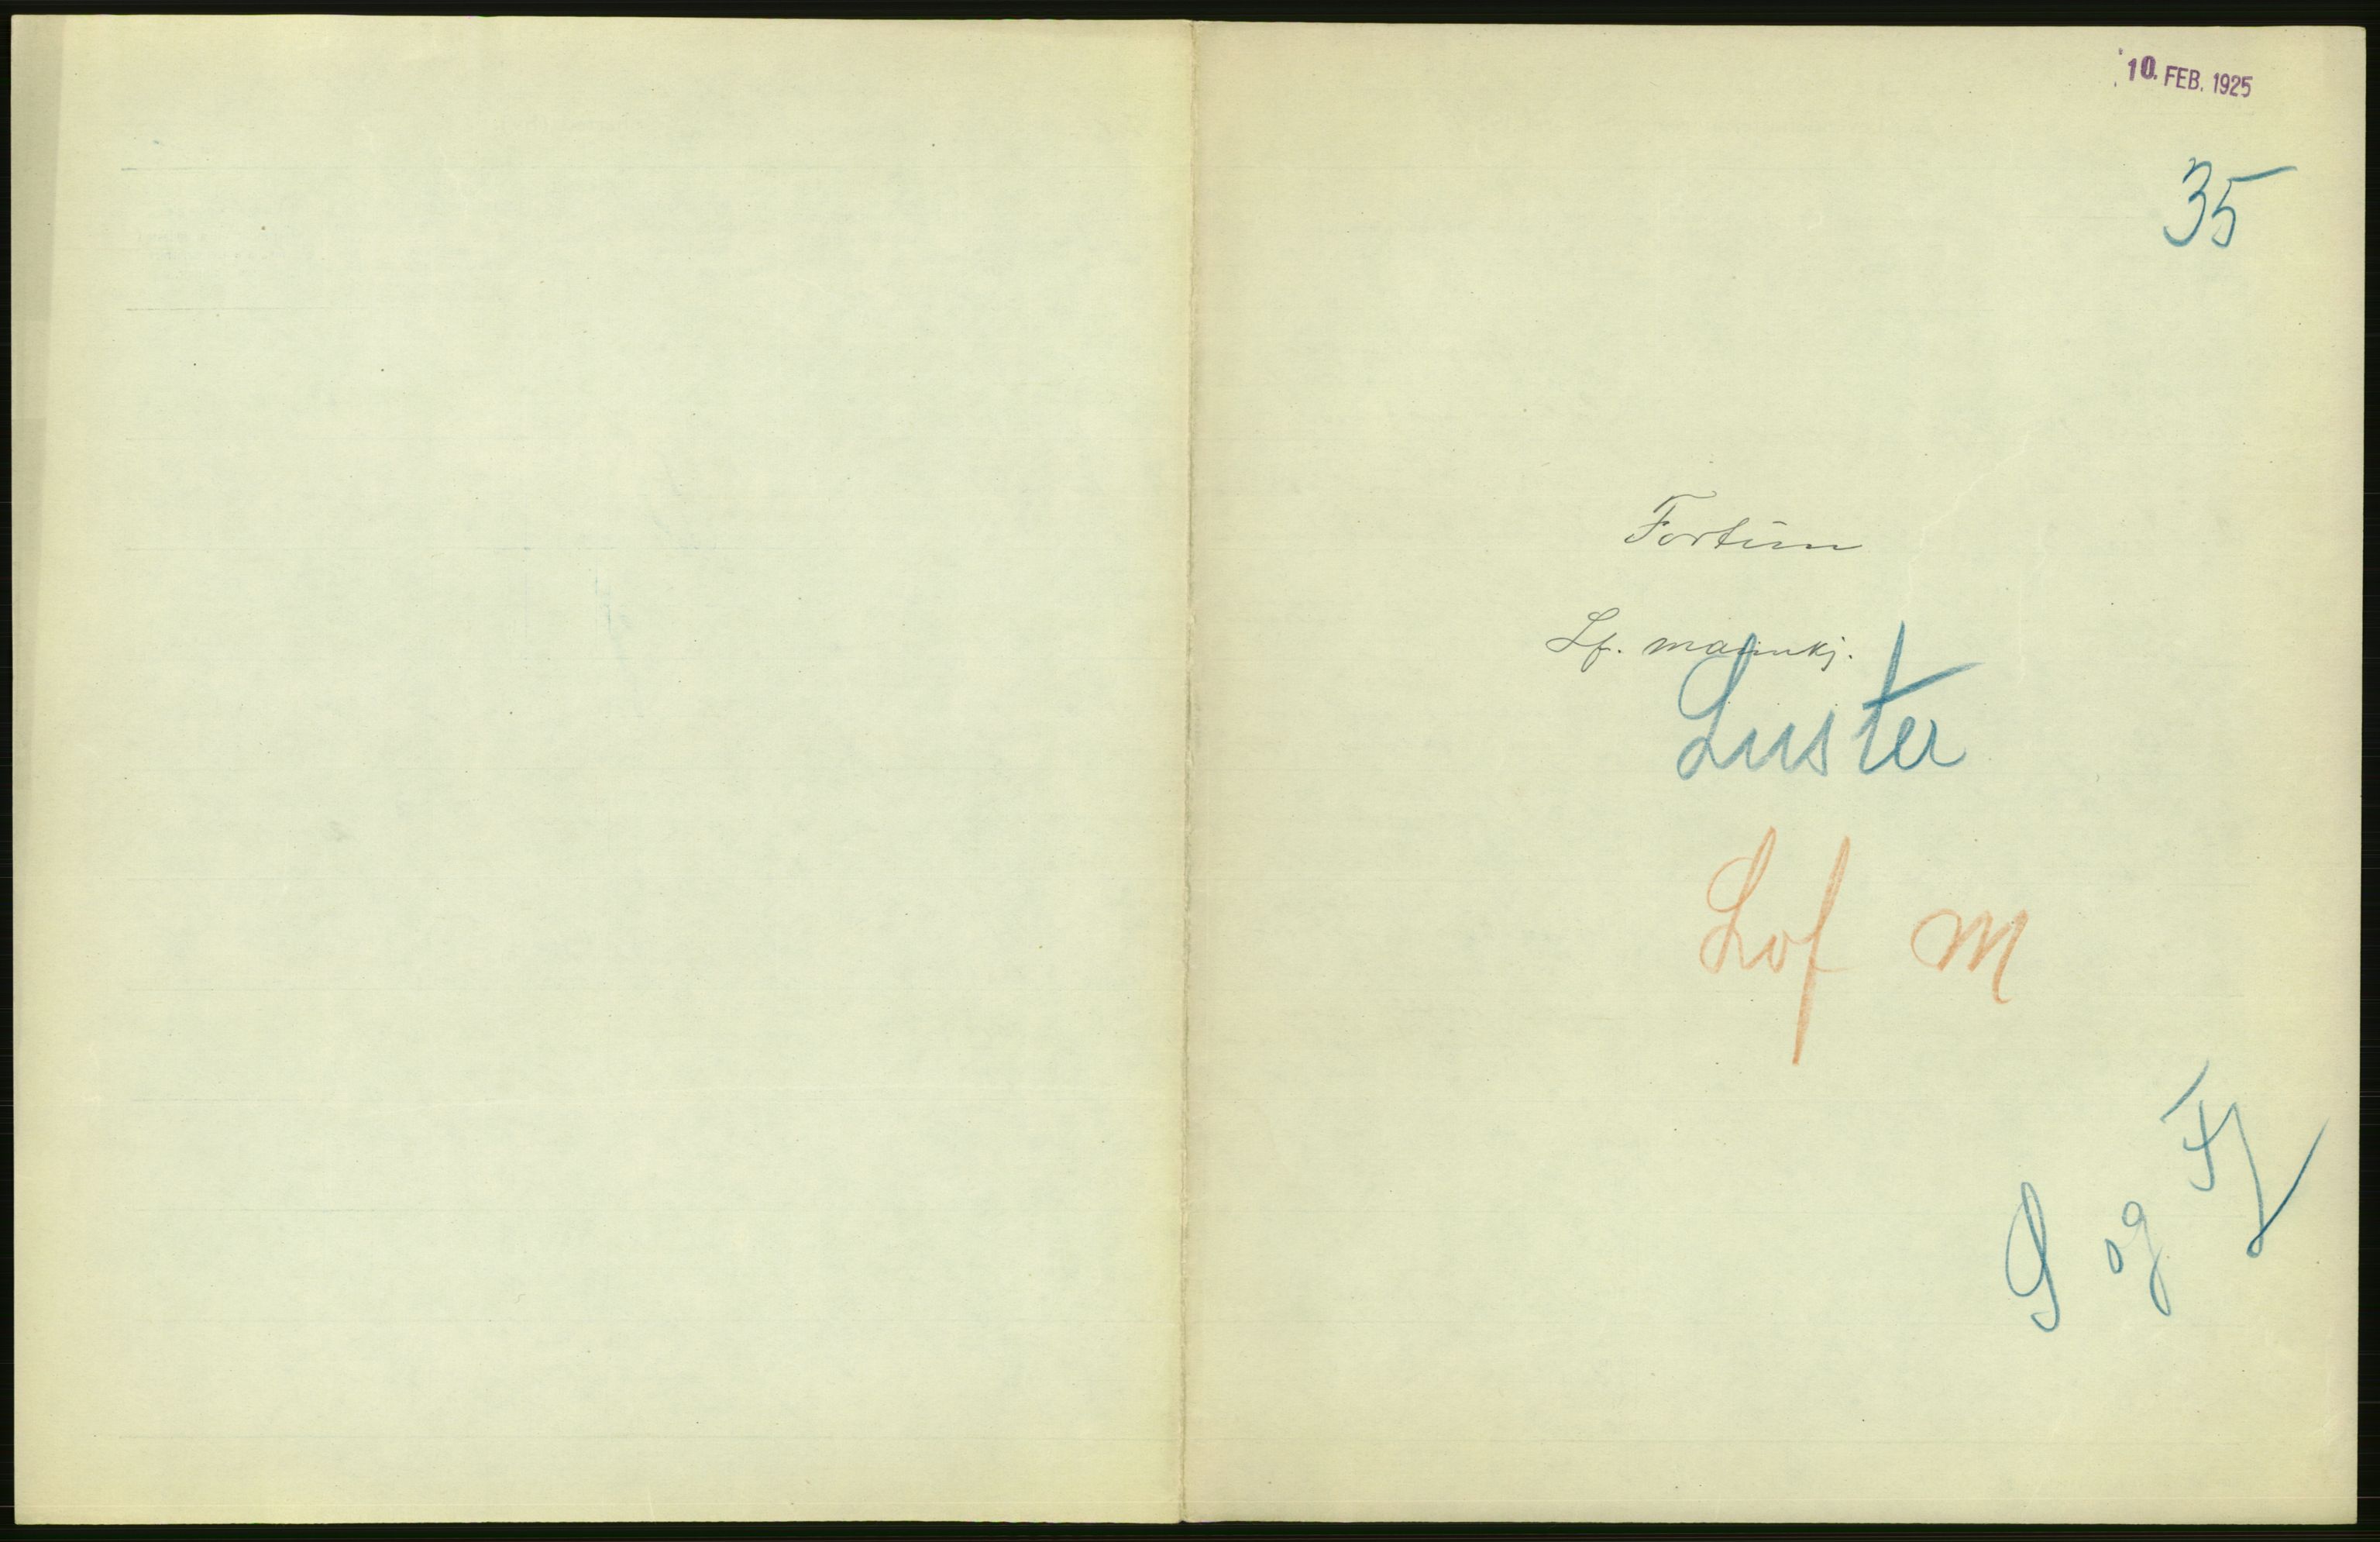 10. FEB. 1925
35
Fortun
Lf. mannkj.
Luster
Lof M
S og Fj